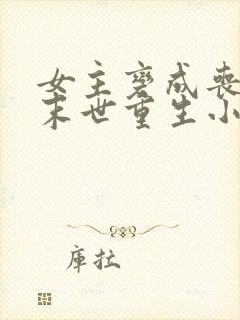 女主变成丧
末世重生小
库拉